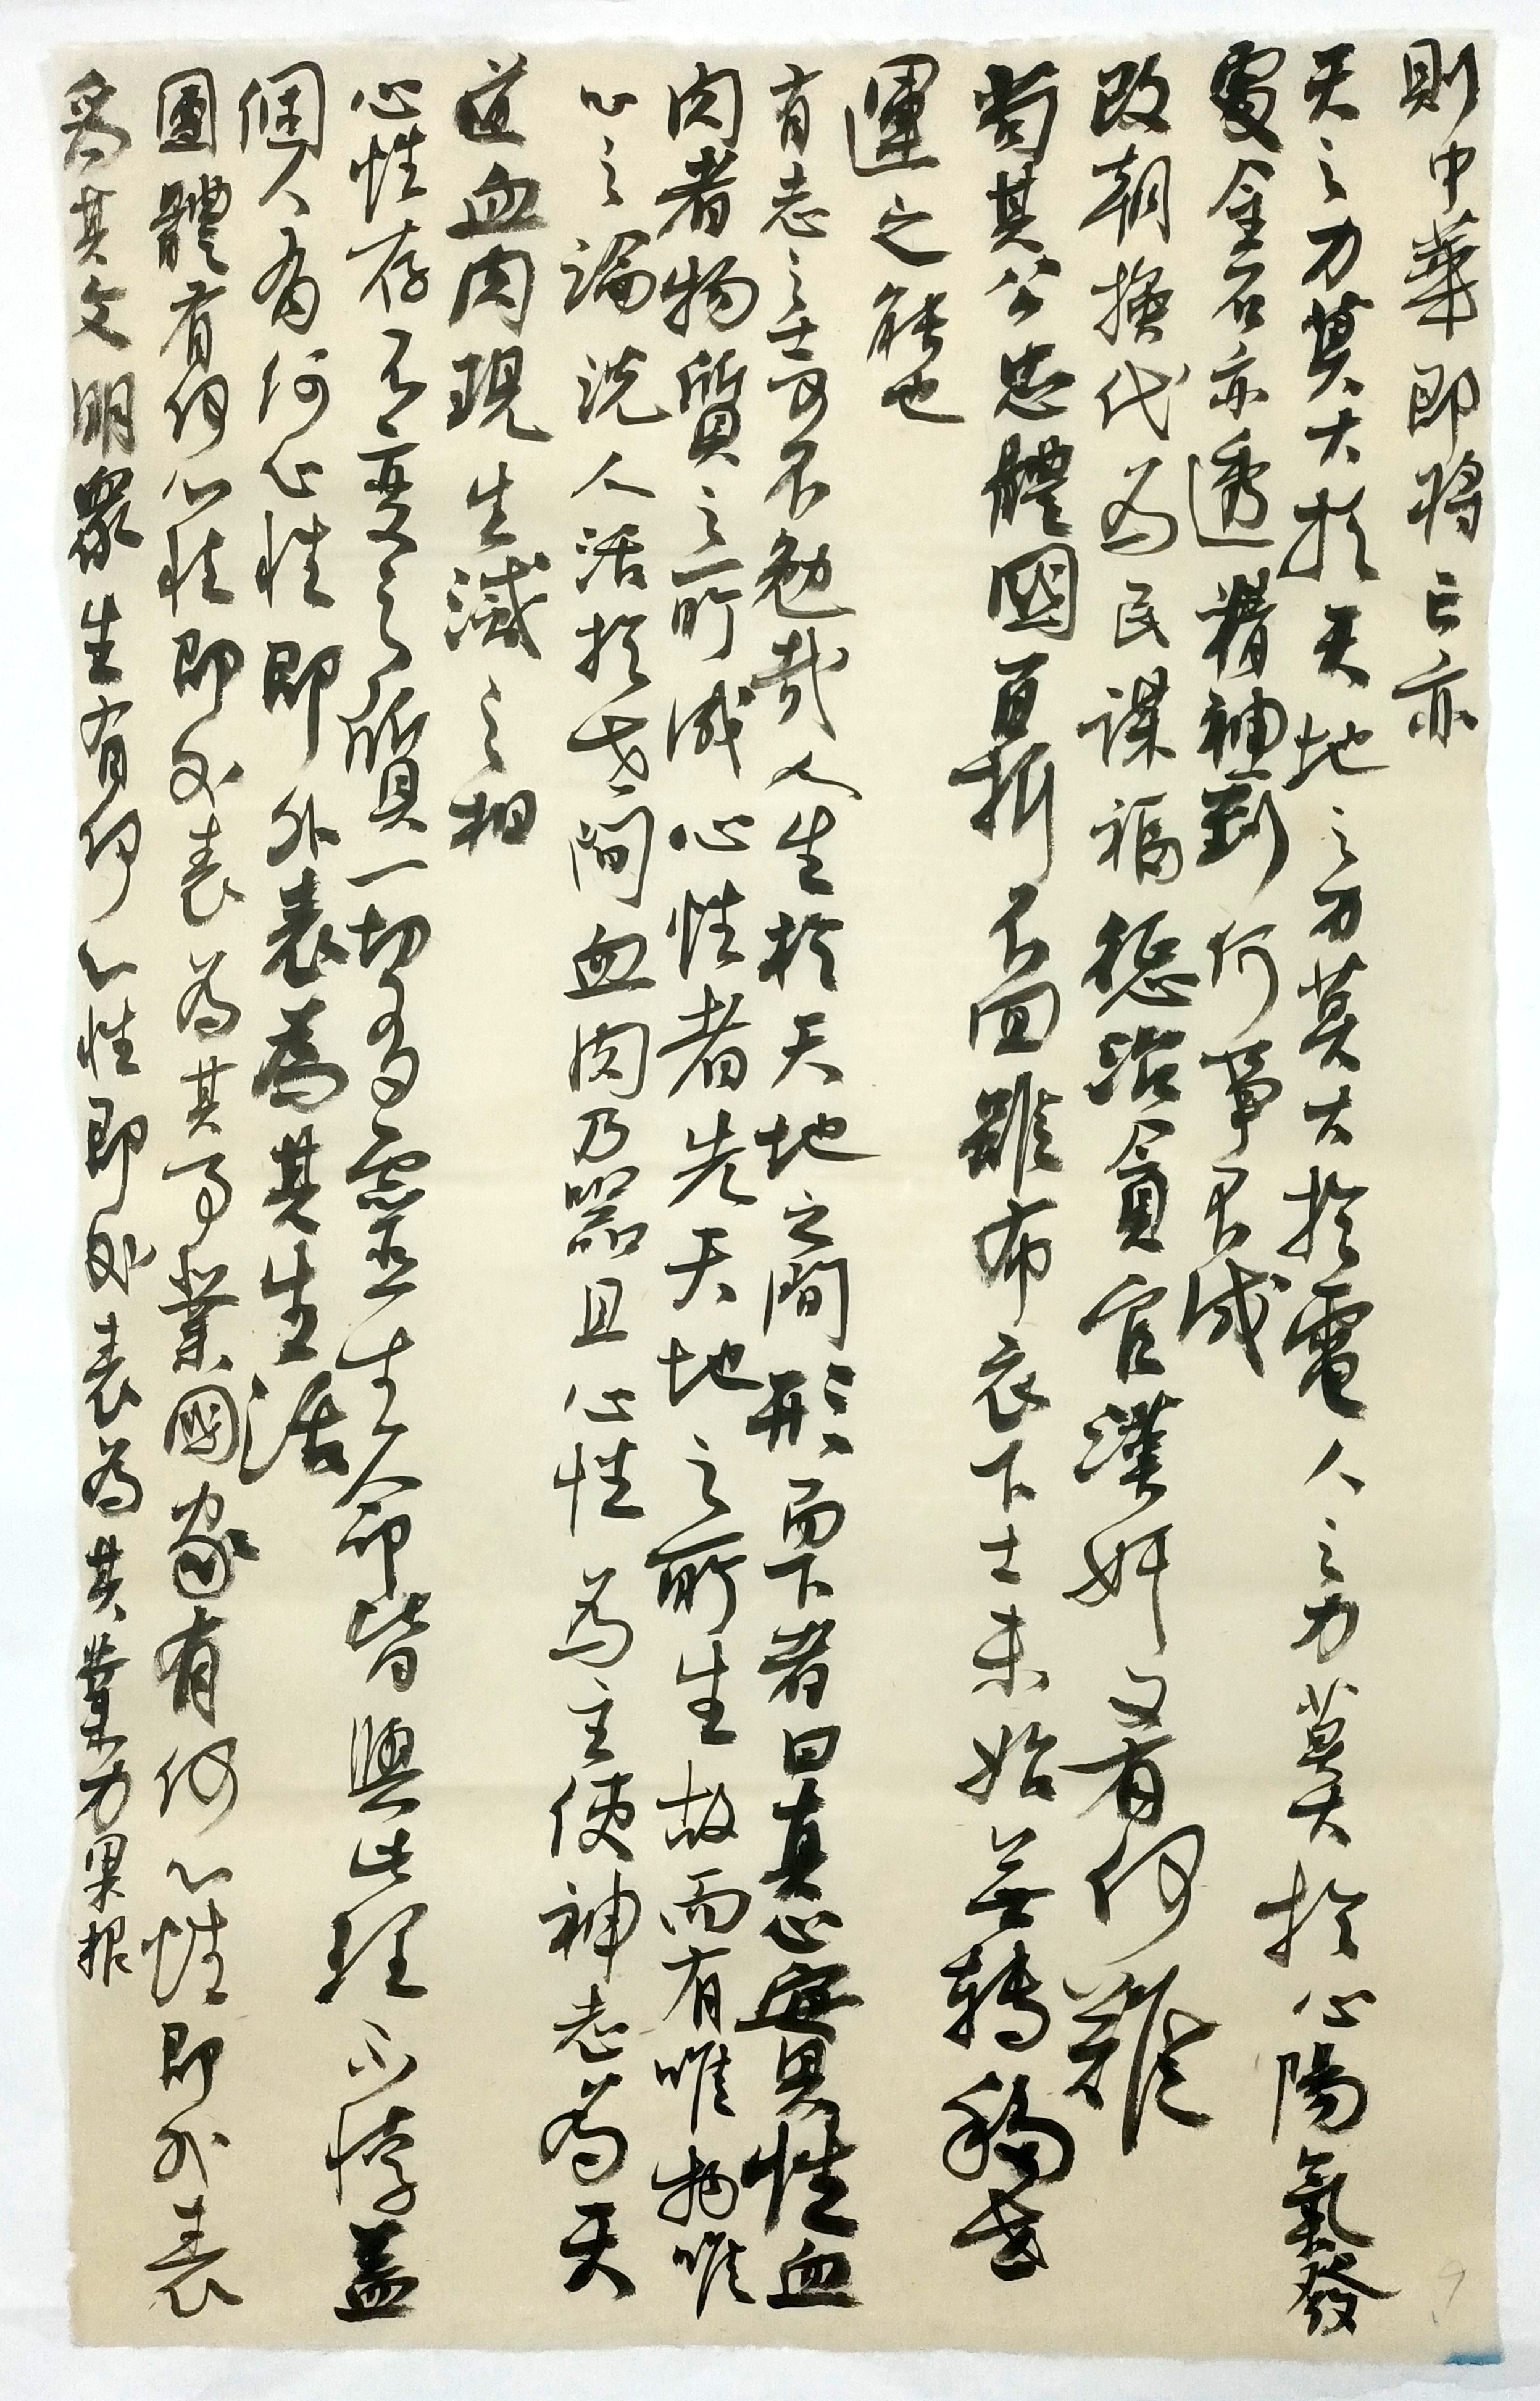 則中華即將亡亦
天之力莫大於天地之力莫大於電人之力莫大於心陽氣發
處金石亦透精神到何事不成
改朝換代為民謀福懲治貪官漢奸又有何難
苟其公忠體國百折不回雖布衣下士未始無轉移世
運之能也
有志之士可不勉哉人生於天地之間形而下者曰真心實性血
肉者物質之所成心性者先天地之所生故而有唯物唯
心之論說人活於世間血肉乃器且心性為主使神志為天
道血肉現生滅之相
心性存不變之質一切有靈生命皆與此理不悖蓋
個人有何心性即外表為其生活
團體有何心性即外表為其事業國家有何心性即外表
為其文明眾生有何心性即外表為其業力果報